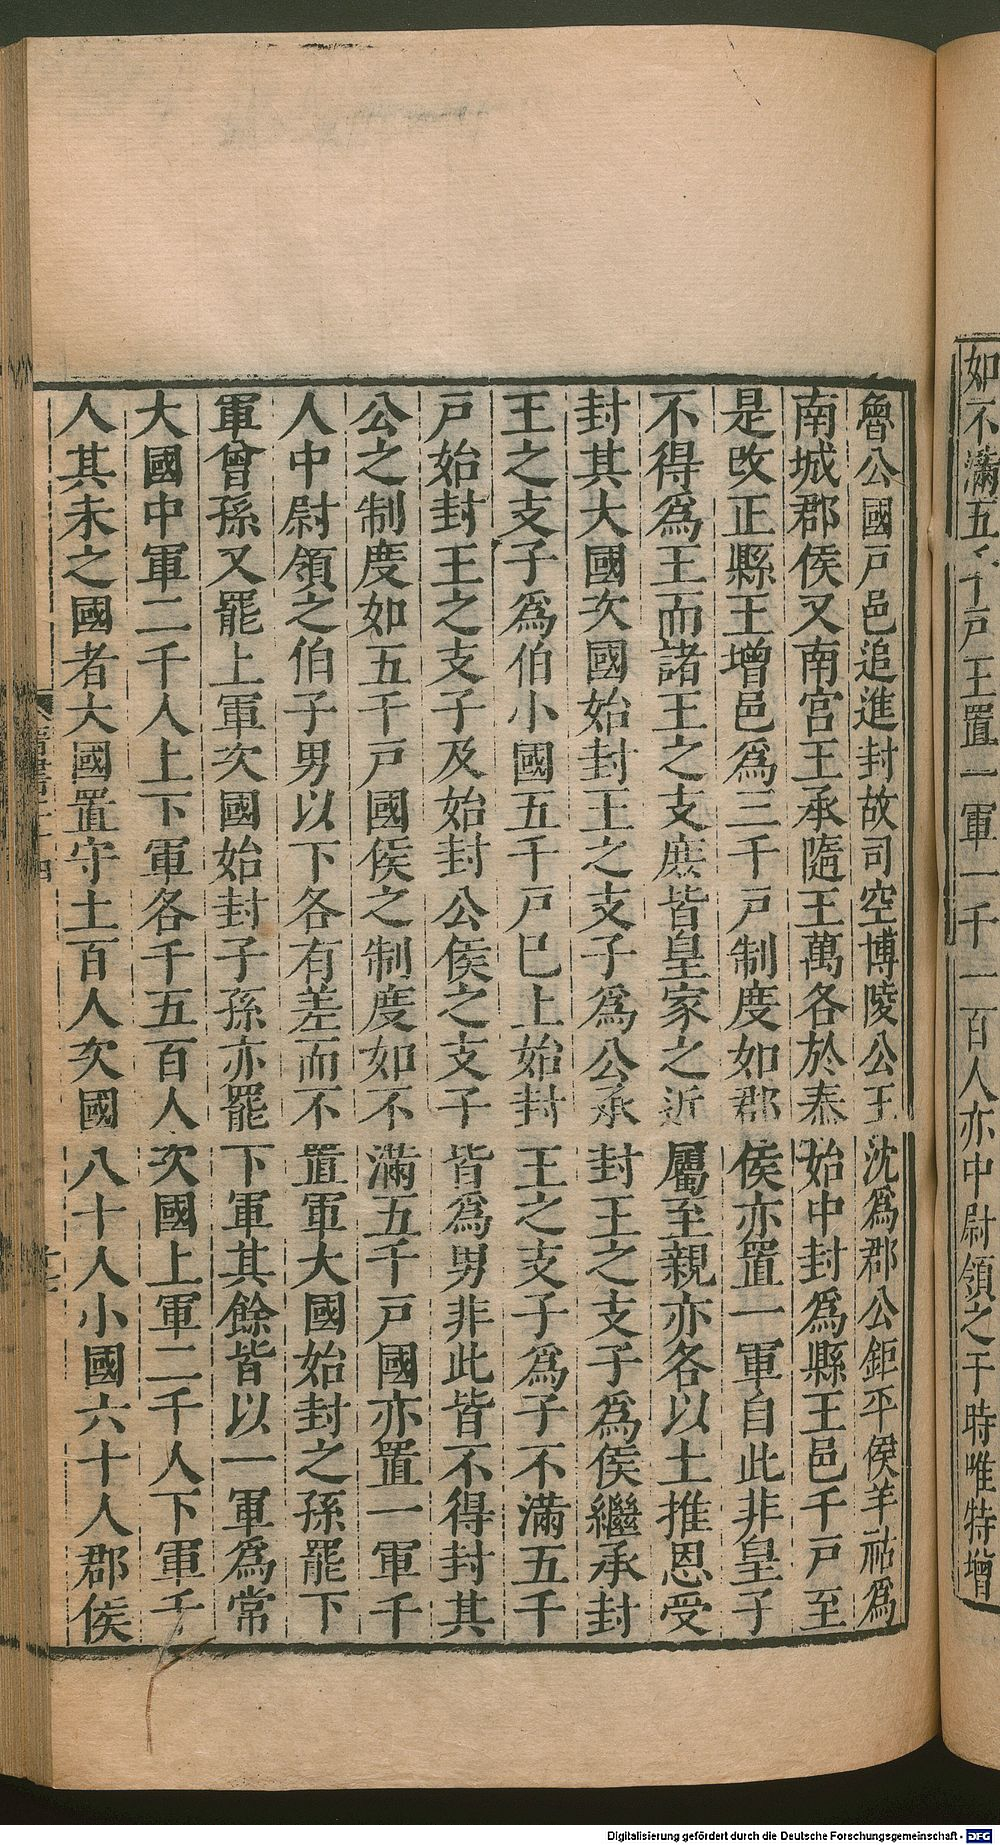 如不滿五千戸王置一軍一千一百人亦中尉領之于時唯特增
魯公國戸邑追進封故司空博陵公王沈爲郡公鉅平侯羊祜爲
南城郡侯又南宫王承隨王萬各於泰始中封爲縣王邑千戸至
是改正縣王增邑爲三千戸制度如郡侯亦置一軍自此非皇子
不得爲王而諸王之支庶皆皇家之近屬至親亦各以土推恩受
封其大國次國始封王之支子爲公承封王之支子爲侯繼承封
王之支子爲伯小國五千戸巳上始封王之支子爲子不滿五千
戸始封王之支子及始封公侯之支子皆爲男非此皆不得封其
公之制度如五千戸國侯之制度如不滿五千戸國亦置一軍千
人中尉領之伯子男以下各有差而不置軍大國始封之孫罷下
軍曾孫又罷上軍次國始封子孫亦罷下軍其餘皆以一軍爲常
大國中軍二千人上下軍各千五百人次國上軍二千人下軍千
人其未之國者大國置守土百人次國八十人小國六十人郡侯
Digitalisierung gefördert durch die Deutsche Forschungsgemeinschaft - DFG